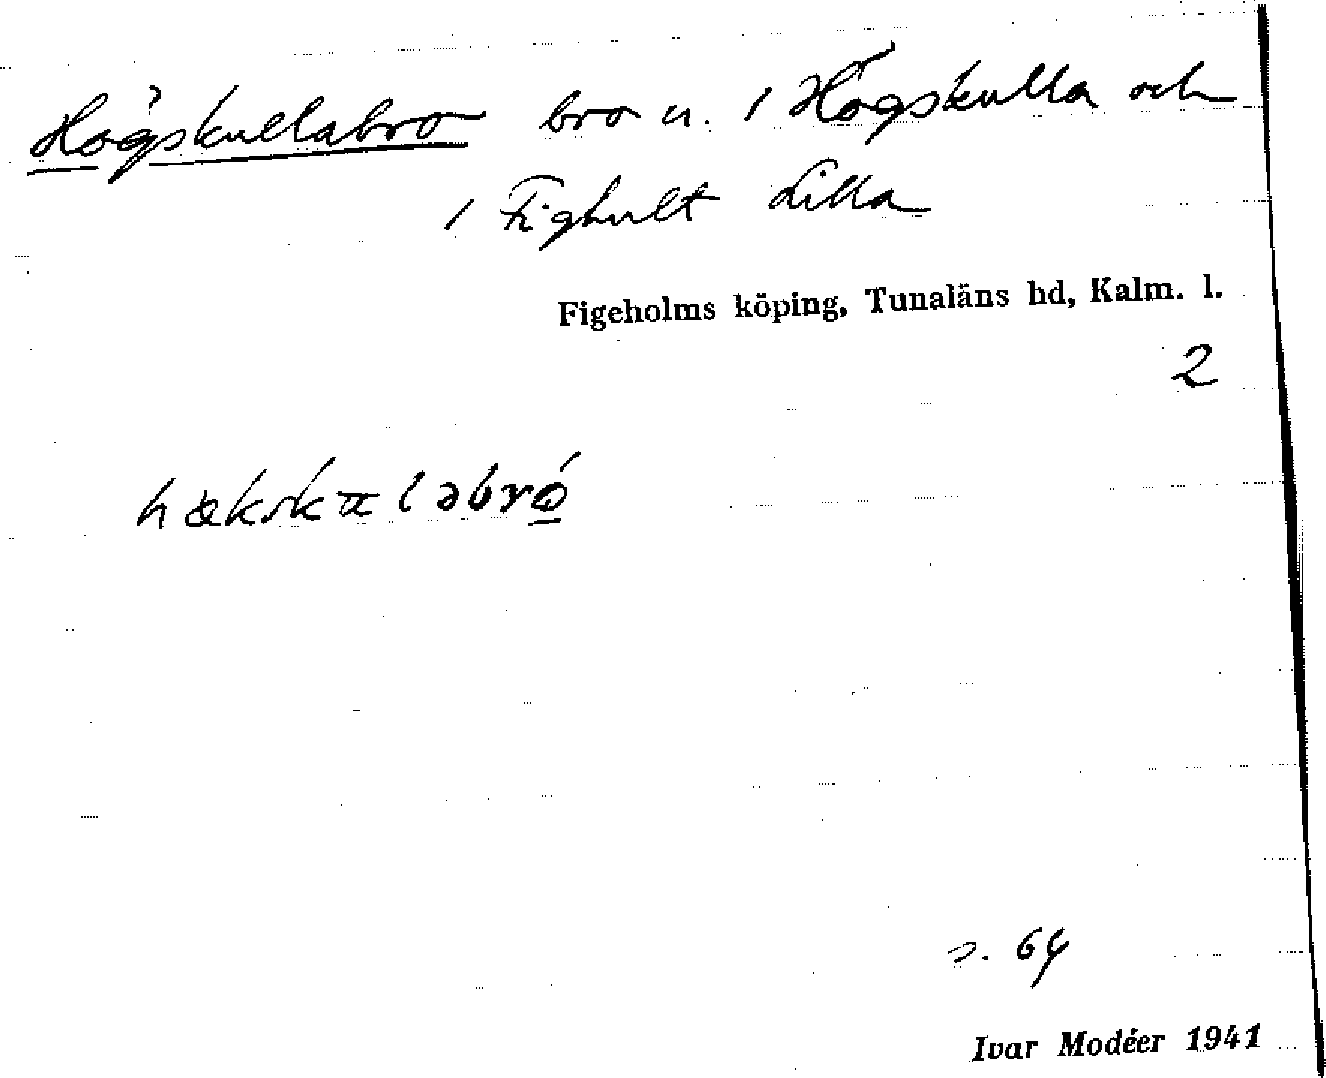 Högskullabro bro u. / Högskulla och
/ Fighult Lilla
Figeholms köping, Tunaläns hd, Kalm. l.
2
s. 64
Ivar Modéer 1941